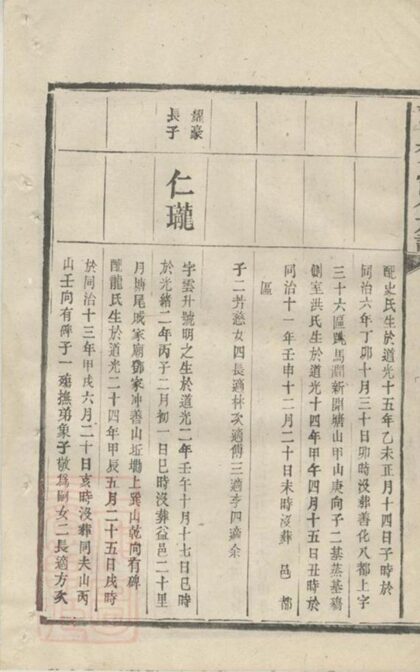 配史氏生於道光十五年乙未正月十四日子時於
同治六年丁卯十月三十日卯時沒葬善化八都上字
三十六區跳馬澗新開塘山甲山庚向子二基蒸基鴻
側室洪氏生於道光十四年甲午四月十五日丑時於
同治十一年壬申十二月二十日未時沒葬 邑 都
區
子二芳慈女四長適林次適傅三適李四適余
耀豪
長子
仁瓏
字雲升號明之生於道光二年壬午十月十七日巳時
於光緒二年丙子二月初 日巳時沒葬益邑二十里
月塘尾戚家廟鄧家冲善山坵墈上巽山乾向有碑
配龍氏生於道光二十四年甲辰五月二十五日戌時
於同治十三年甲戌六月二十日亥時沒葬同夫山丙
山壬向有碑子一殤撫弟象子敬為嗣女二長適方次